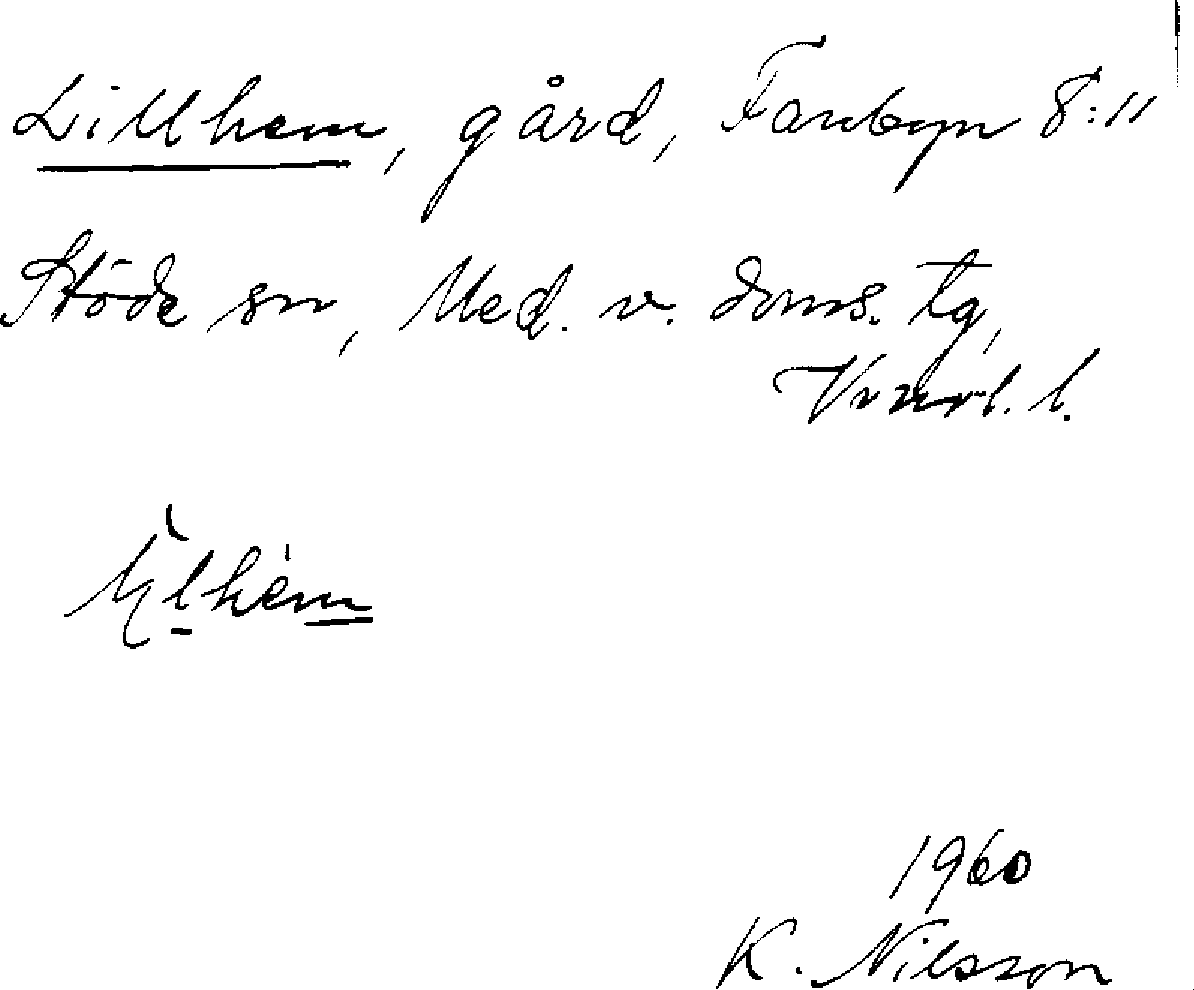 Lillhem, gård, Fanbyn 8:11
Stöde sn, Med. v. doms. tg,
Vnorl. l.
1960
K. Nilsson